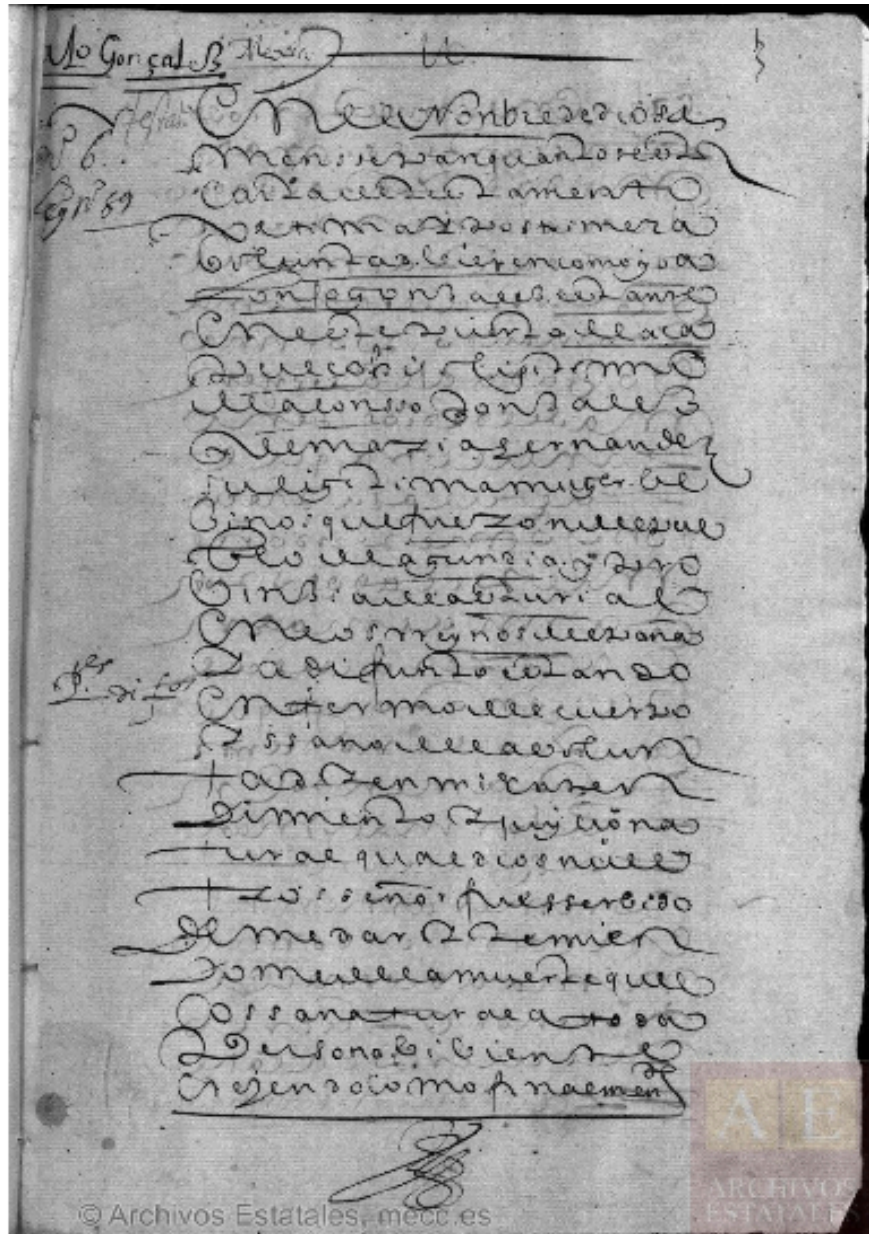 Alo Gonçales Mexia
En el Nonbre de dios a
men ssepan quantos esta
carta de testamento
vltima y postrimera
boluntad bieren como yo a
lonso gonsales estante
En este puerto de aca
pulco hijo lixitimo
de alonsso gonsales
y de maria hernandes
su lixitima muger be
sinos que fueron de
pro
binsia de asturias
En los rreynos despaña
ya difuntos estando
Enfermo de cuerpo
y ssano de la volun
tad y en mi enten
dimiento y juiçio na
tural qual dios nues
tro sseñor fue sserbido
de me dar y temien
dome de la muerte que es
cossa natural a toda
persona bibiente
creyendo como firmemen
difos
© Archivos Estatales, mecc.es
AE
ARCHIVOS
ESTATALES